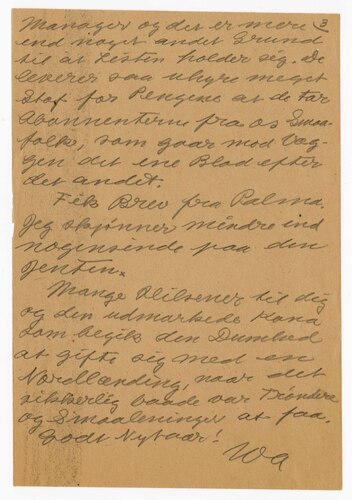 Manager og det er mere 3
end noget andet Grund
til at Listen holder sig. De
leverer saa uhyre meget
Stof for Pengene at de tar
Abonnenterne fra os Smaa-
folk, som gaar mod Væg-
gen det ene Blad efter
det andet.
Fik Brev fra Palma.
Jeg skjønner mindre end
nogensinde paa den
Jenten.
Mange Hilsener til dig
og den udmarkede Kona
som begik den Dumhed
at gifte sig med en
Nordlænding, naar det
sikkerlig baade var Trøndere
og Smaaleninger at faa.
Godt Nytaar!
Wa